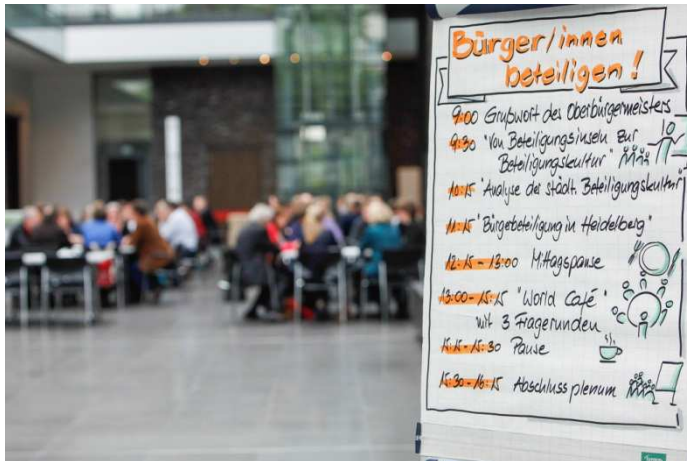 Bürger/innen
beteiligen!
9:00 Grußwort des Oberbürgermeisters
9:30 "Von Beteiligungsinseln zur
Beteiligungskultur"
10:15 "Analyse der städt. Beteiligungskultur"
11:15 "Bürgebeteiligung in Heidelberg"
12:15 - 13:00 Mittagspause
13:00 - 15:15 "World Café"
mit 3 Fragerunden
15:15 - 15:30 Pause
15:30 - 16:15 Abschlussplenum